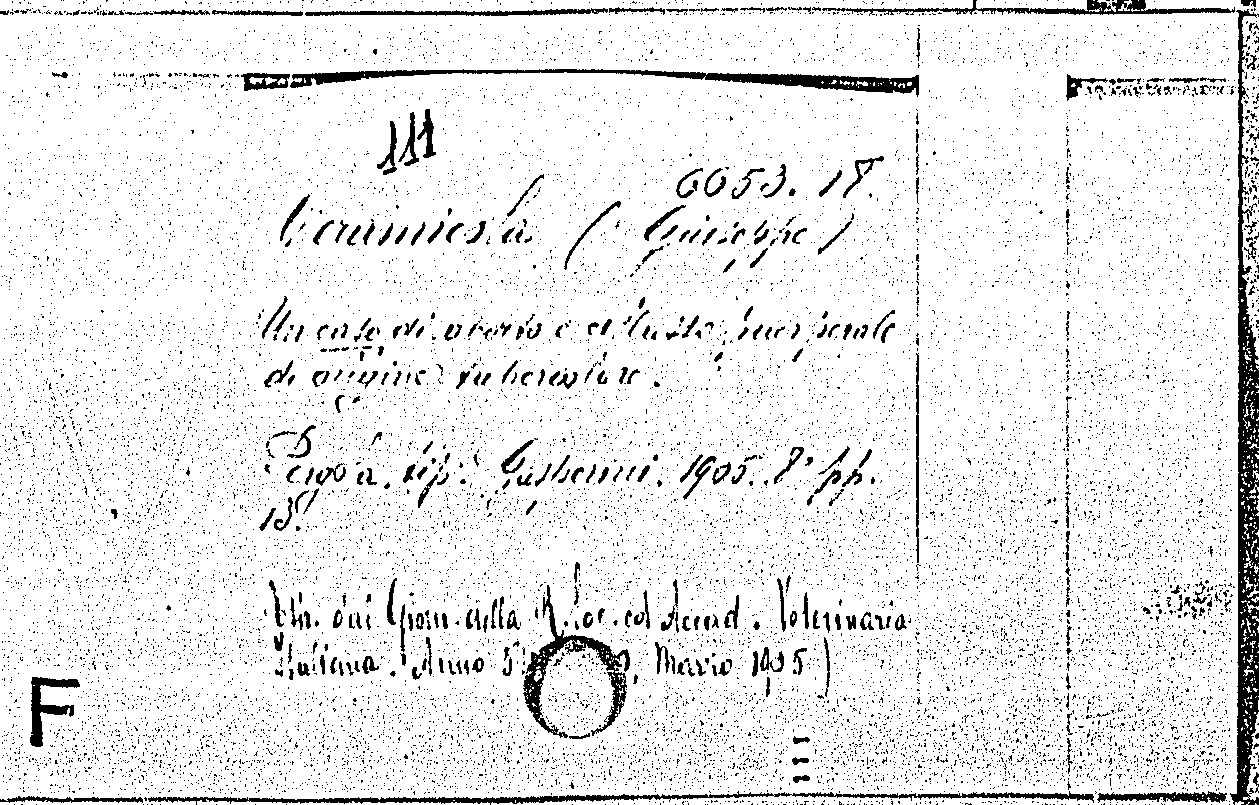 111
6653. 18.
Ceramicola (Giuseppe)
Un caso di aborto e puerperale
di origine tubercolare.
Pergola, tip. Gasperini. 1905. 8° pp.
13.
Estr. dai Giorn. della R. Soc. ed Accad. Veterinaria
Italiana. Anno Marzo 1905)
F